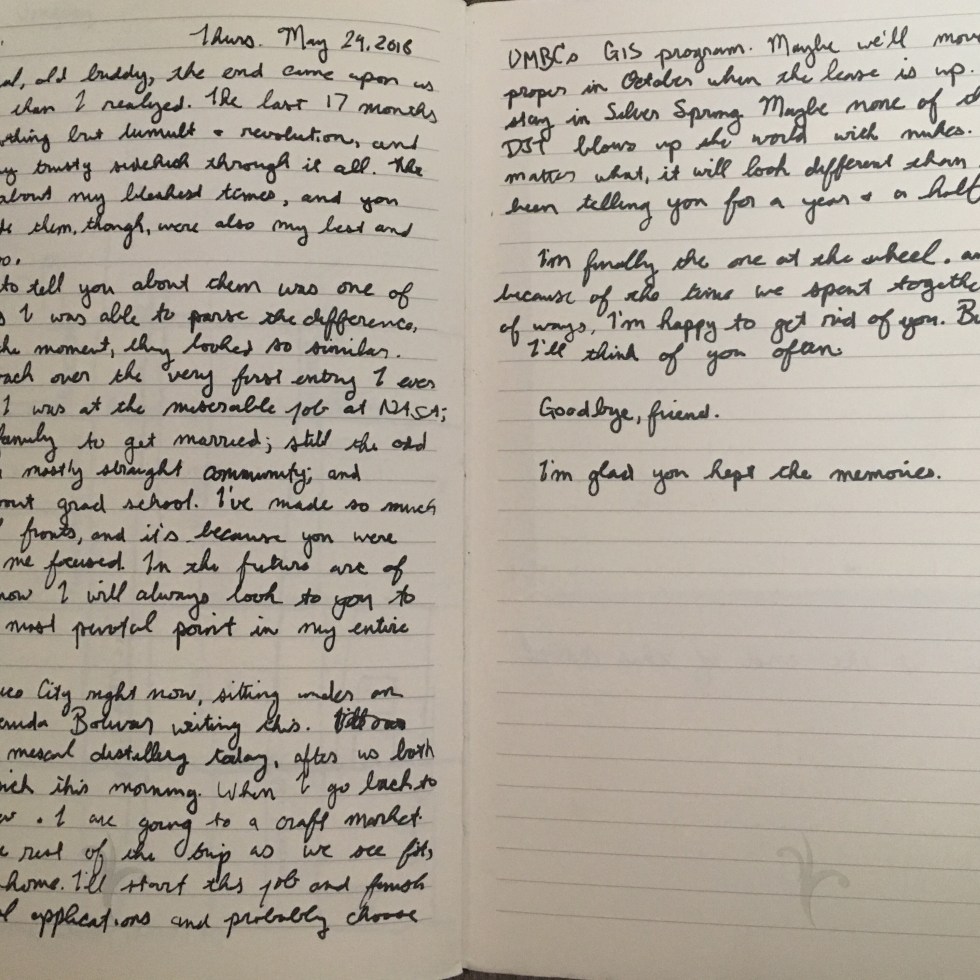 Thurs. May 24, 2018
al, old buddy, the end came upon us
than I realized. The last 17 months
thing but tumult & revolution, and
y trusty sidekick through it all. The
about my bleakest times, and you
them, though, were also my best and
oo.
to tell you about them was one of
s I was able to parse the difference,
he moment, they looked so similar.
ach over the very first entry I ever
I was at the miserable job at NASA;
family to get married; still the odd
mostly straight community; and
out grad school. I've made so much
fronts, and it's because you were
me focused. In the future arc of
now I will always look to you to
most pivotal point in my entire
ico City right now, sitting under an
enida Bolivar writing this.
mescal distillery today, after us both
ich this morning. When I go back to
w . I are going to a craft market.
e rest of the trip as we see fit,
home. I'll start this job and finish
l applications and probably choose
UMBCs GIS program. Maybe we'll mov
proper in October when the lease is up.
stay in Silver Spring. Maybe none of th
DJT blows up the world with nukes.
matter what, it will look different than
been telling you for a year & a half
I'm finally the one at the wheel, an
because of the time we spent togethe
of ways, I'm happy to get rid of you. Bu
I'll think of you often.
Goodbye, friend.
I'm glad you kept the memories.